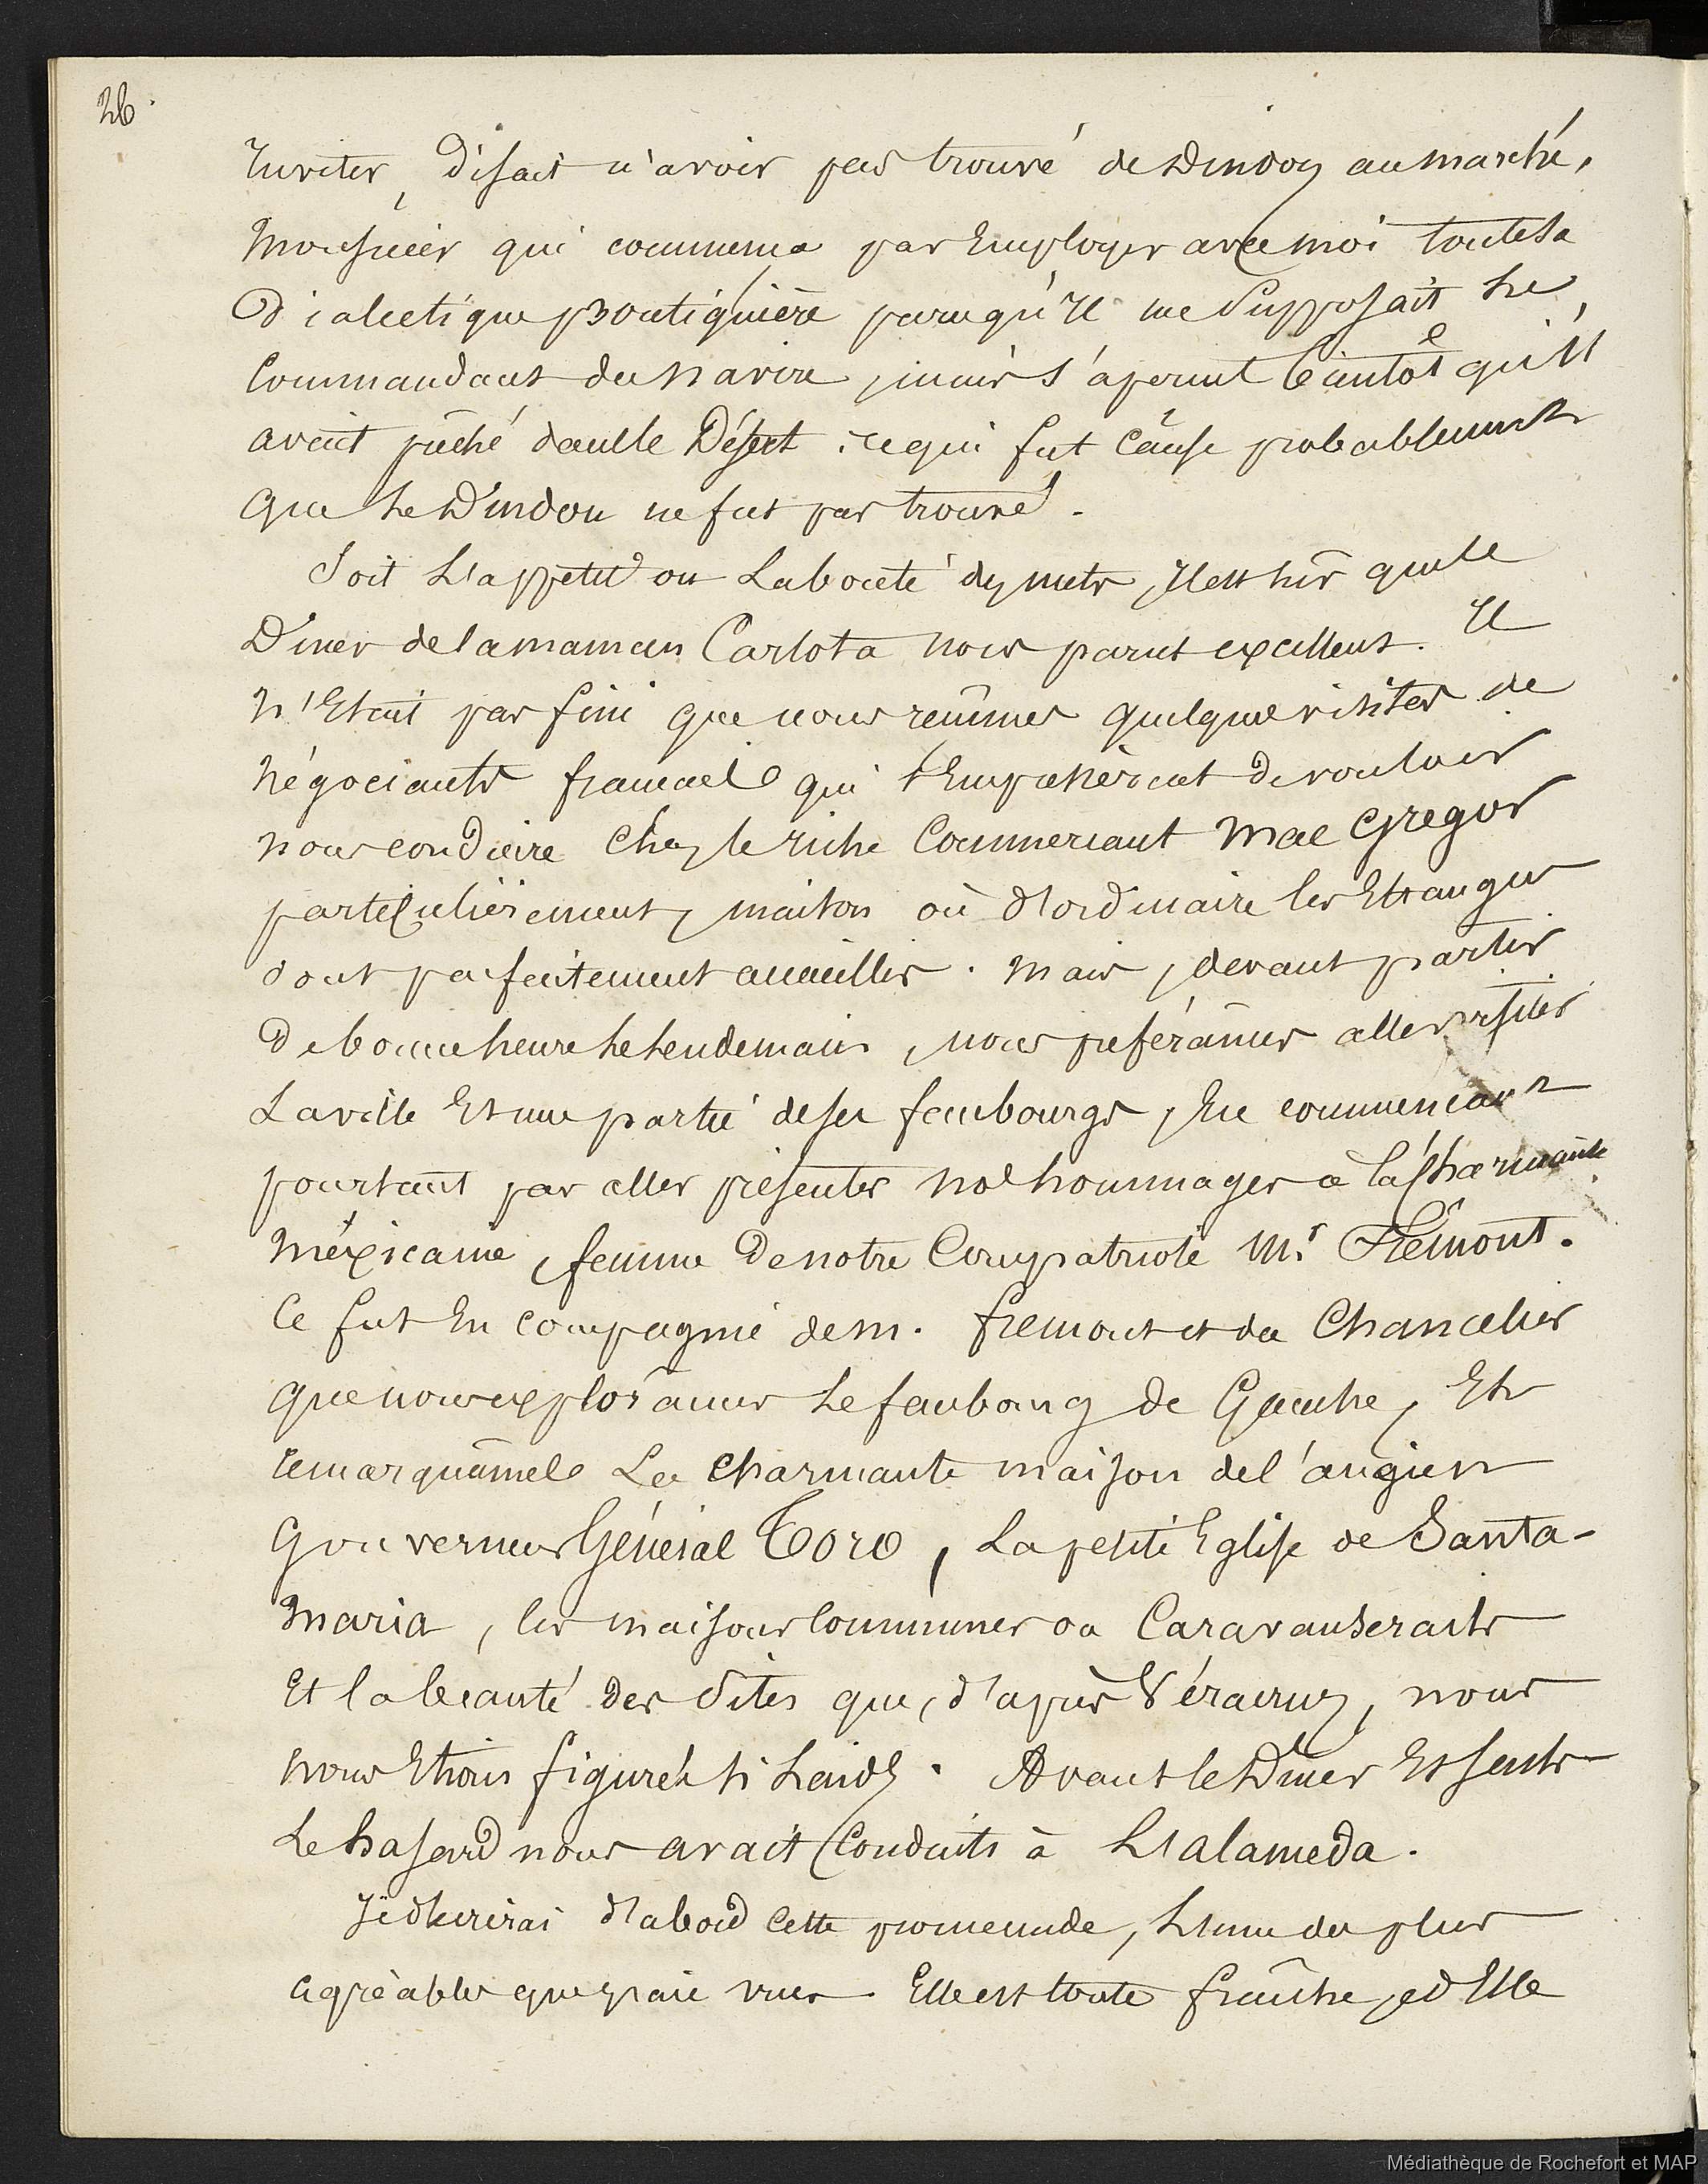 26.
Inviter, disait n'avoir pas trouvé de Dindon au marché,
Monsieur qui commença par Employer avec moi toute sa
Dialectique Boutiquière parcequ'Il me Supposait Le
Commandant du navire, mais s'aperçut bientôt qu'Il
avait prêché dans le Désert. ce qui fut cause probablement
Que Le Dindon ne fut pas trouvé.
Soit L'appétit ou La bonté des mets, Il est sûr que le
Diner de la maman Carlota nous parut excellent. Il
n'Etait pas fini que nous reûmes quelques visites de
négociants francais qui s'Empressèrent de vouloir
nous conduire Chez le riche Commercant Mac Gregor
particulièrement, maison où d'ordinaire les Etrangers
sont parfaitement accueillis. Mais, devant partir
De bonne heure Le Lendemain, nous préférâmes aller visiter
La ville Et une partie de ses faubourgs, En commencant
pourtant par aller présenter nos hommages à la Charmante
Méxicaine, femme De notre Compatriote Mr Frémont.
Ce fut En Compagnie de M. fremont et du Chancelier
Que nous explorâmes Le faubourg de Gauche, Et
remarquâmes La Charmante maison de l'ancien
Gouverneur Général Toro, La petite Eglise de Santa-
Maria, les maisons Communes ou Caravanserails
Et la beauté des Sites que, d'après Véracruz, nous
nous Etions figurés si Laids. Avant le Diner Et seuls
Le hasard nous avait Conduits à L'alameda.
Je décrirai d'abord Cette promenade, L'une des plus
agréables que j'aie vues. Elle est toute fraîche, et Elle
Médiathèque de Rochefort et MAP